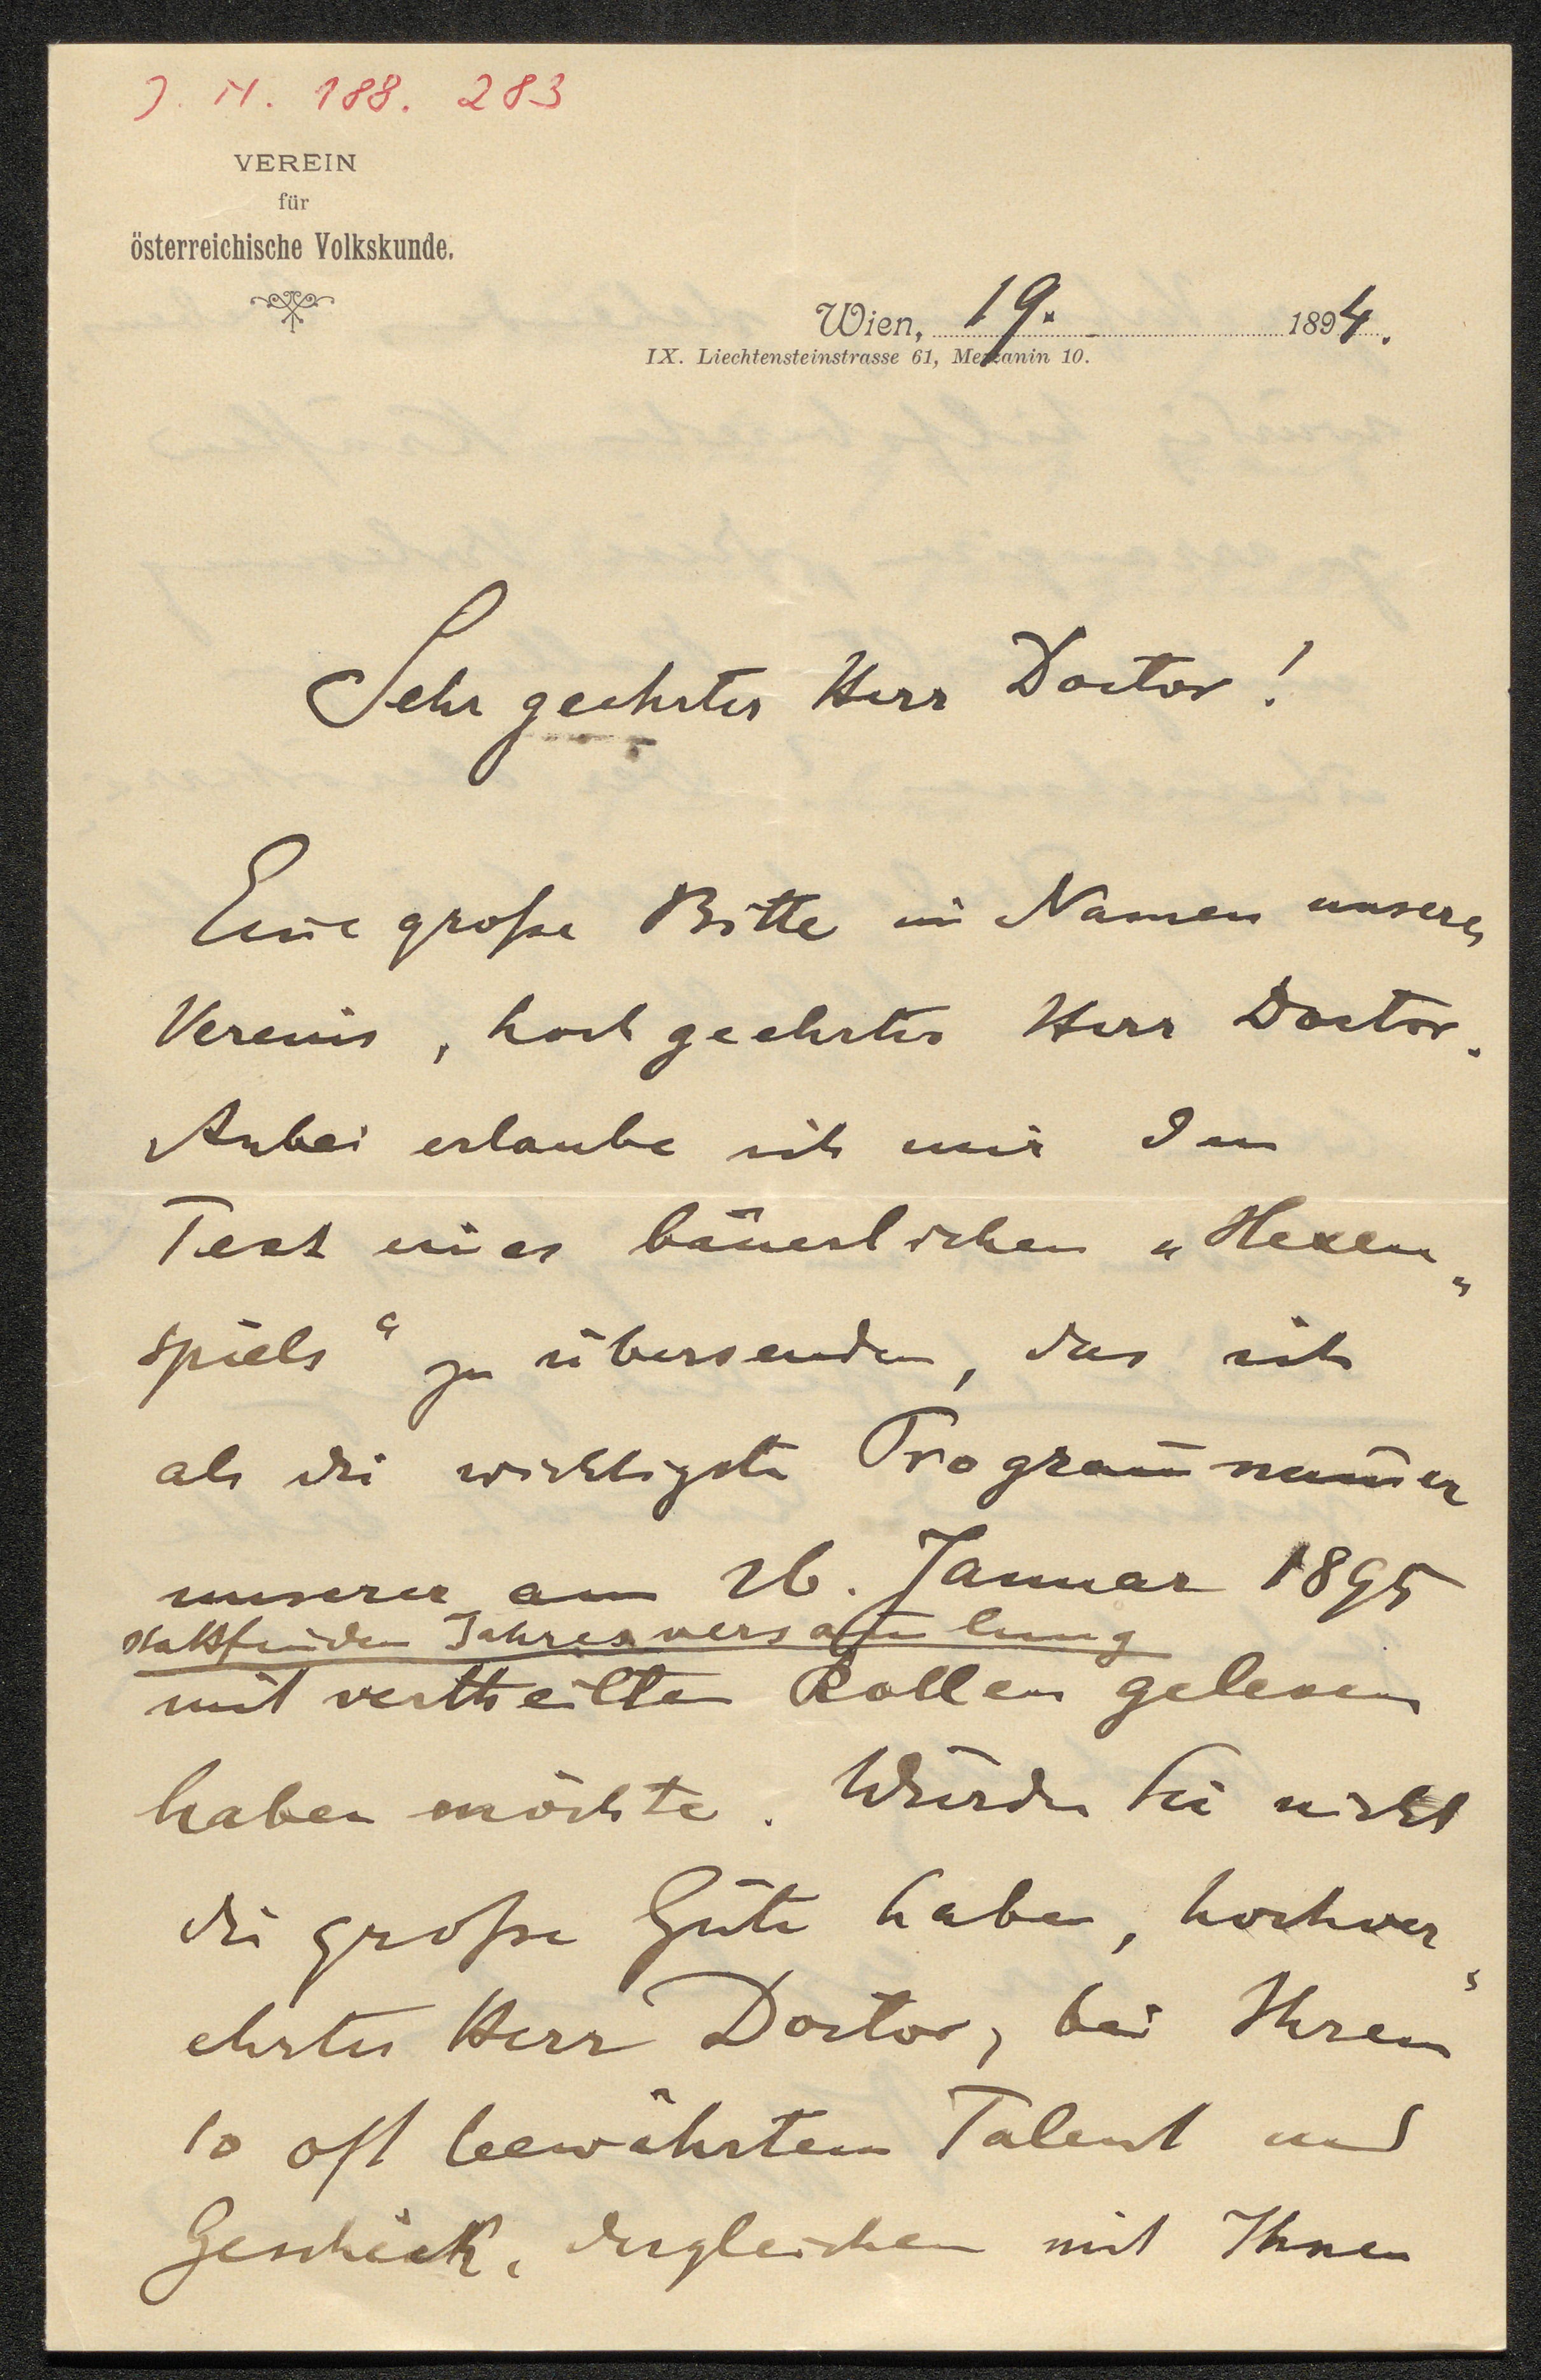 J. N. 188. 283
VEREIN
für
österreichische Volkskunde.
Wien, 19. 1894.
IX. Liechtensteinstrasse 61, Mezzanin 10.
Sehr geehrter Herr Doctor!
Eine große Bitte im Namen unseres
Vereins, hochgeehrter Herr Doctor.
Anbei erlaube ich mir den
Text eines bäuerlichen „Hexen„
spiels“ zu übersenden, das ich
als die wichtigste Program̅num̅er
unserer am 26. Januar 1895
stattfinden Jahresversam̅lung
mit vertheilten Rollen gelesen
haben möchte. Würden Sie nicht
die große Güte haben, hochver„
ehrter Herr Doctor, bei Ihrem
so oft bewährtem Talent und
Geschick, dergleichen mit Ihnen